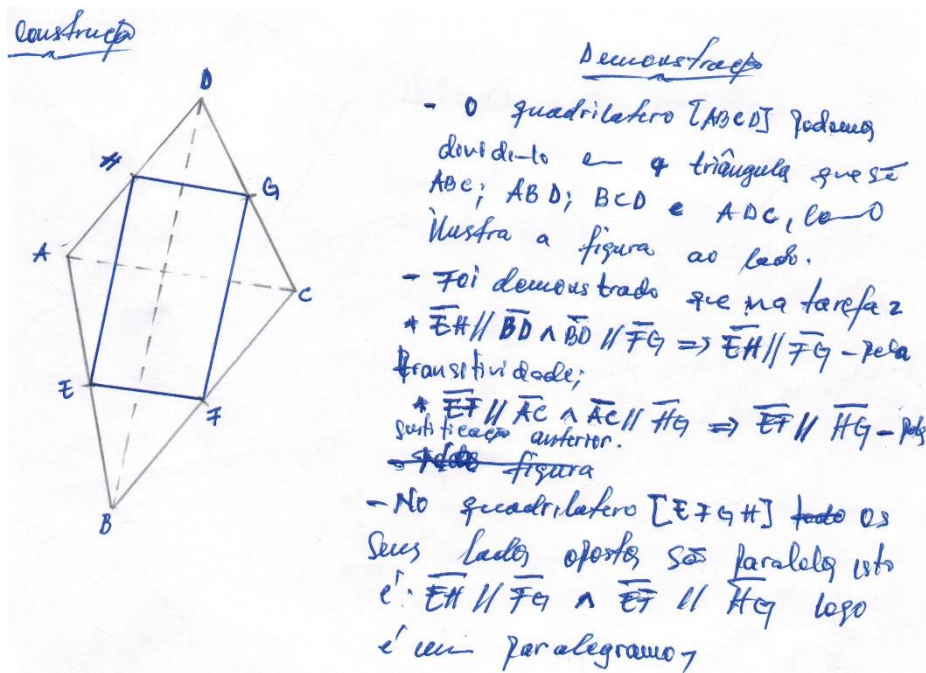 Construção
D
H
G
A
C
E
F
B
Demonstração
- O quadrilatero [ABCD] podemos
dividi-lo em 4 triângulos que são
ABC; ABD; BCD e ADC, como
ilustra a figura ao lado.
- Foi demonstrado que na tarefa 2
* E̅H̅ // B̅D̅ ∧ B̅D̅ // F̅G̅ => E̅H̅ // F̅G̅ - pela
transitividade;
* E̅F̅ // A̅C̅ ∧ A̅C̅ // H̅G̅ => E̅F̅ // H̅G̅ - pela
justificação anterior.
figura
- No quadrilatero [EFGH] todo os
seus lados opostos são paralelos isto
é: E̅H̅ // F̅G̅ ∧ E̅F̅ // H̅G̅ logo
é um paralegramo,